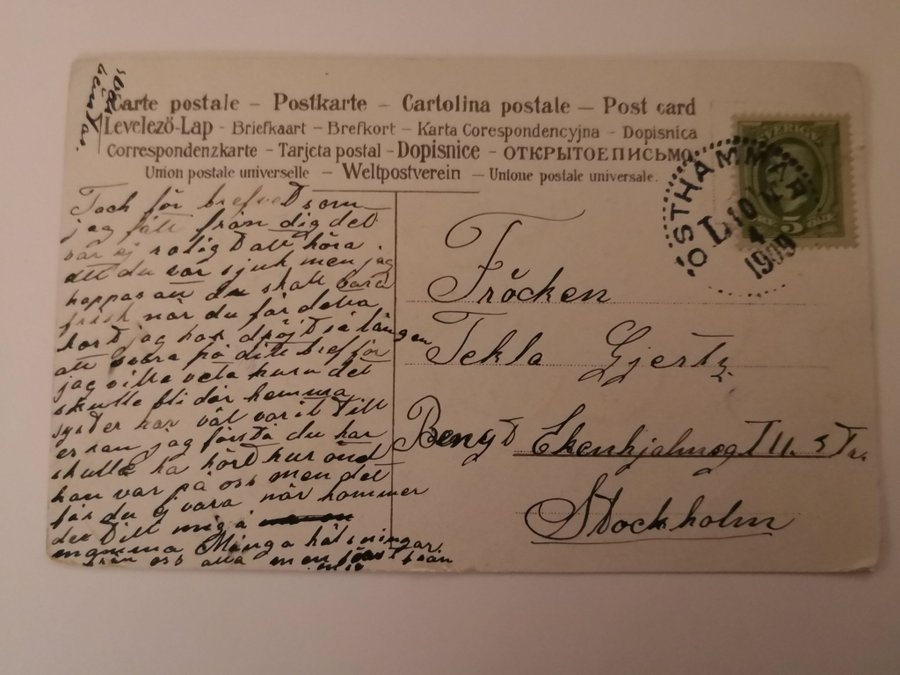 Carte postale – Postkarte – Cartolina postale – Post card
Levelezö-Lap - Briefkaart – Brefkort – Karta Corespondencyjna – Dopisnica
Correspondenzkarte – Tarjeta postal – Dopisnice – ОТКРЫТОЕ ПИСЬМО
Union postale universelle – Weltpostverein – Unione postale universale.
SVERIGE
5
ÖSTHAMMAR
10
4
1909
Tack för brefvet som
jag fått från dig det
var ej rolig att höra
att du var sjuk men jag
hoppas att du skall bara
frisk när du får detta
kort jag har dröjt så längen
att svara på ditt bref för
jag ville veta huru det
skulle bli där hemma
syster har väl varit till
er kan jag förstå du har
skulle ha hört hur ond
han var på oss men det
får du när kommer
det till mig å
mamma Många hälsningar
från oss alla men från
Fröcken
Tekla Gjertz
Bengt Ekenhjelmsgt 11. 3 Tr.
Stockholm